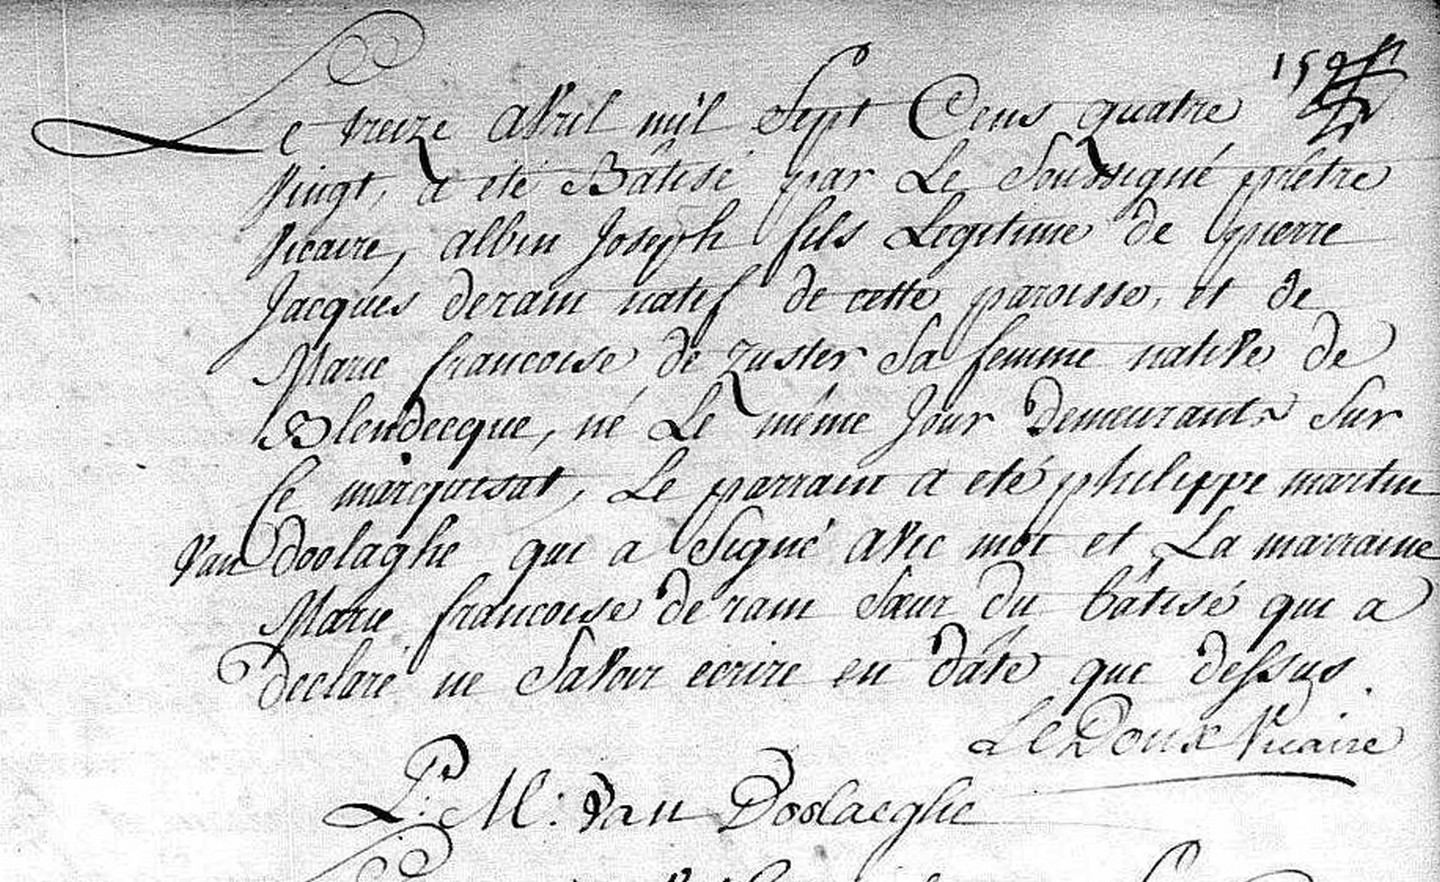 Le treize Avril mil Sept Cens quatre
Vingt, a eté Bâtisé par Le Soussigné prêtre
Vicaire, albin Joseph fils Legitime de pierre
Jacques deram natif de cette paroisse, et de
Marie francoise de zuster Sa femme native de
Blendecque, né Le même Jour Demeurants Sur
Ce marquisat, Le parrain a eté philippe martin
Van Doolaghe qui a Signé avec moi et La marraine
Marie francoise de ram Sœur du bâtisé qui a
declaré ne Savoir ecrire en dâte que dessus.
Le Doux Vicaire
P: M: Van Doolaeghe